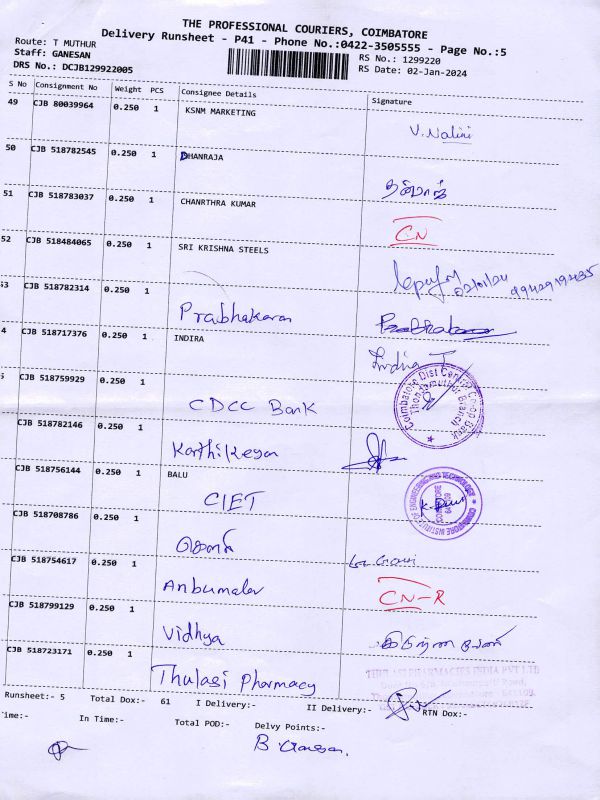 THE PROFESSIONAL COURIERS, COIMBATORE
Delivery Runsheet - P41 - Phone No.:0422-3505555 - Page No.:5
Route: T MUTHUR
Staff: GANESAN
RS No.: 1299220
DRS No.: DCJB129922005
RS Date: 02-Jan-2024
S No Consignment No Weight PCS Consignee Details Signature
49 CJB 80039964 0.250 1 KSNM MARKETING V. Nalini
50 CJB 518782545 0.250 1 DHANRAJA
51 CJB 518783037 0.250 1 CHANRTHRA KUMAR CN
52 CJB 518484065 0.250 1 SRI KRISHNA STEELS 02/01/24
53 CJB 518782314 0.250 1 Prabhakaran Prabhakaran
4 CJB 518717376 0.250 1 INDIRA Indira T
CJB 518759929 0.250 1 CDCC Bank
Coimbatore Dist Central Co-op Bank
Thondamuthur Branch
CJB 518782146 0.250 1 Karthikeyan
CJB 518756144 0.250 1 BALU CIET
COIMBATORE INSTITUTE OF ENGINEERING AND TECHNOLOGY
COIMBATORE
641 109
CJB 518708786 0.250 1
CJB 518754617 0.250 1 Anbumalar CN-R
CJB 518799129 0.250 1 Vidhya
CJB 518723171 0.250 1 Thulasi Pharmacy
THULASI PHARMACIES INDIA PVT LTD
Runsheet:- 5 Total Dox:- 61 I Delivery:- II Delivery:- RTN Dox:-
Time:- In Time:- Total POD:- Delvy Points:-
B. Ganesan.